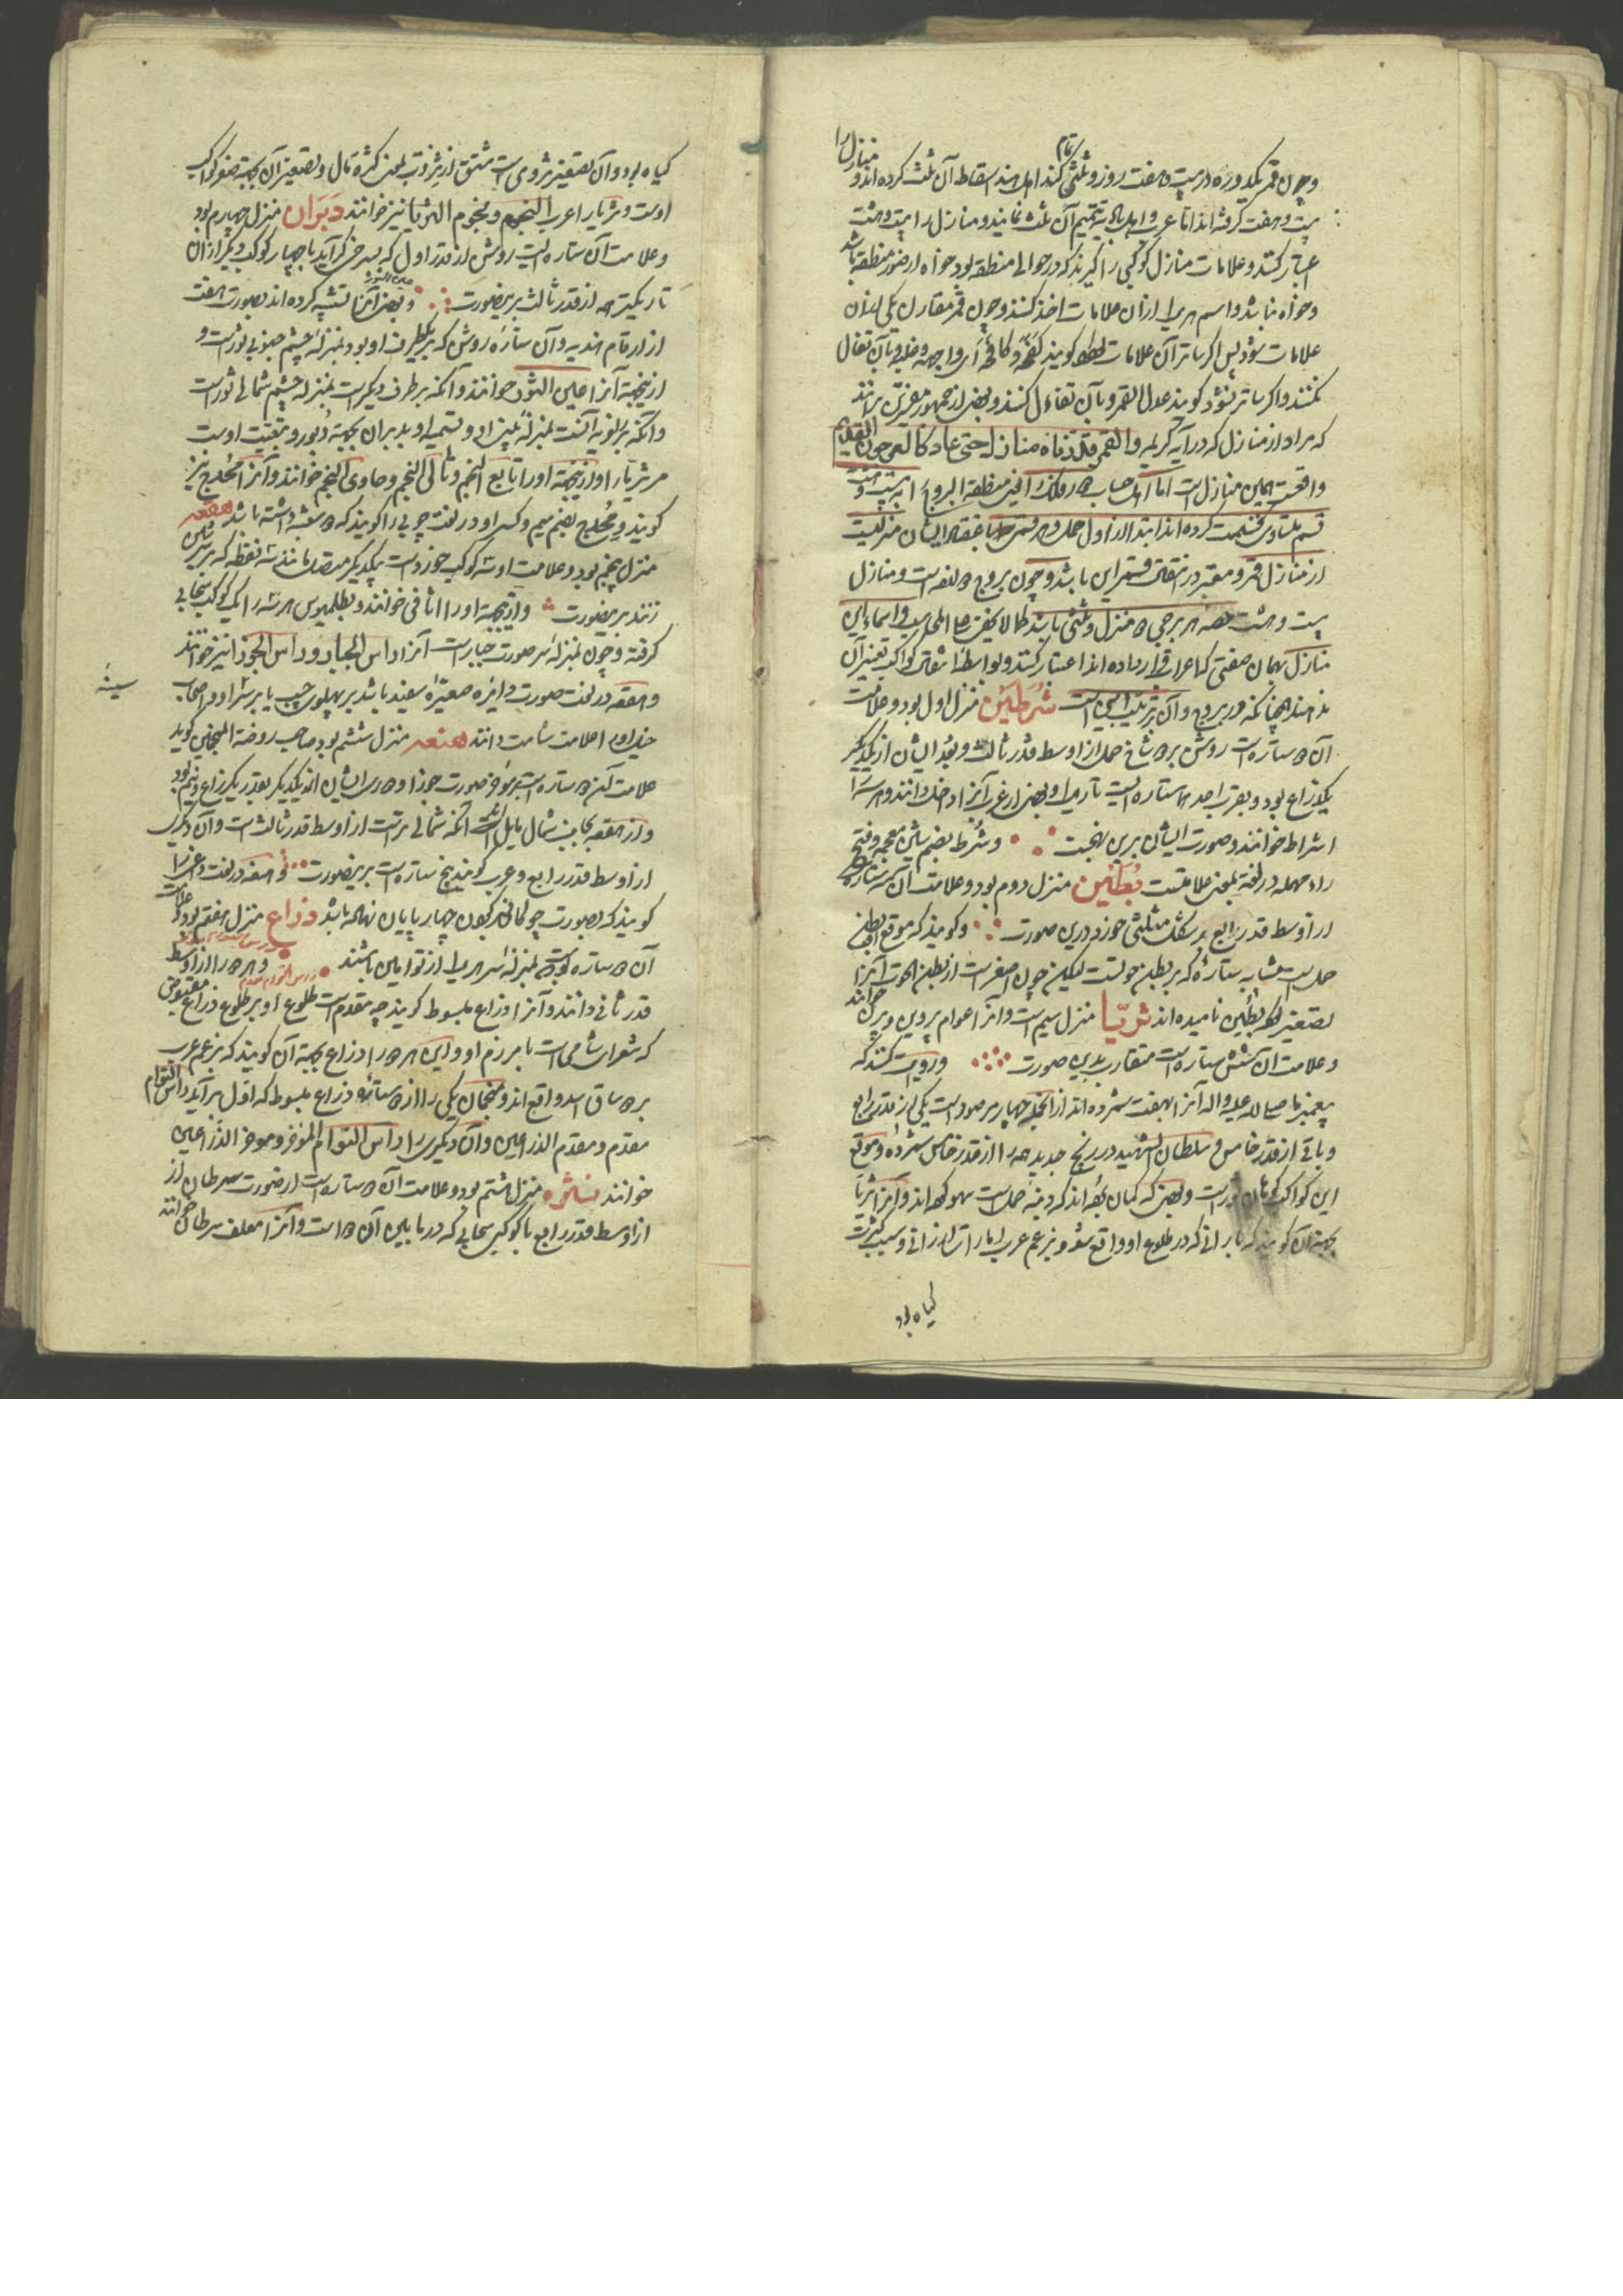 و چون قمر یکدوره در بیست و هفت روز و ثلثی تمام کند اهل هند اسقاط آن ثلث کرده اند و منازل را
بیست و هفت گرفته اند اما عرب و اهل بادیه تتمیم آن ثلث نمایند و منازل را بیست و هشت
اعتبار کنند و علامات منازل کوکبی را گیرند که در حوالی منطقه بود خواه از صور منطقه باشد
و خواه نباشد و اسم هر یک از آن علامات اخذ کنند و چون قمر مقارن یکی از آن
علامات شود پس اگر ساتر آن علامات گویند کفحه و کافحه ای واجهه و غلبه و بآن تفال
نکنند و اگر ساتر نشود گویند عدل القمر و بآن تفاءل کنند و بعضی از جمهور مفسرین برانند
که مراد از منازل که در آیه کریمه والقمر قدرناه منازل حتی عاد کالعرجون القدیم
واقعست همین منازل است اما اهل حساب دور فلک اعنی منطقة البروج را به بیست و هشت
قسم متساوی قسمت کرده اند ابتدا از اول حمل و هر قسمی باعتقاد ایشان منزلیست
از منازل قمر و معتبر در تقویم قسم این باشد و چون بروج دوازده است و منازل
بیست و هشت حصه هر برجی دو منزل و ثلثی باشد و اسماء این
منازل بهمان صفتی که اعراب قرار داده اند اعتبار کنند و بواسطه انتقال کواکب تغییر آن
ندهند چنانکه در بروج و آن بترتیب اینست شرطین منزل اول بود و علامت
آن دو ستاره است روشن بر دو شاخ حمل از اوسط قدر ثالث و بعد ایشان از یکدیگر
یکذراع بود و بقرب احدهما ستاره ایست تاریک و بعضی از عرب آنرا داخل دانند و هر سه را
اشراط خوانند و صورت ایشان برین نهجست و شرط بضم شین معجمه و فتح
راء مهمله در لغة بمعنی علامتست بطین منزل دوم بود و علامت آن سه ستاره
از اوسط قدر رابع بر شکل مثلثی خورد درین صورت و گویند که موقع آن بطن
حمل است مشابه ستاره که بر بطن حوتست لیکن چون اصغر است از بطن الحوت آنرا
بتصغیر بطین نامیده اند ثریا منزل سیم است و آنرا عوام پروین و پرن خوانند
و علامت آن شش ستاره است متقارب بدین صورت و روایت کنند که
پیغمبر ما صلی الله علیه و اله آنرا بهفت شمرده اند از آنجمله چهار مرصود است یکی از قدر رابع
و باقی از قدر خامس و سلطان الشهید در زیج جدید همه را از قدر خامس شمرده و موقع
این کواکب کوهان ثور است و بعضی که گمان برده اند که دنبه حمل است سهو کرده اند و آنرا ثریا
بجهة آن گویند که بارانی که در طلوع او واقع شود بزعم عرب امارات ارزانی و سبب کثرت
گیاه بود
گیاه بود و آن تصغیر ثروی است مشتق از ثروت بمعنی کثرة مال و تصغیر آن بجهة صغر کواکب
اوست و ثریا را عرب النجم و نجوم الثریا نیز خوانند دبران منزل چهارم بود
و علامت آن ستاره ایست روشن از قدر اول که بسرخی گراید با چهار کوکب دیگر از آن
تاریکتر همه از قدر ثالث برینصورت و بعضی آنرا تشبیه کرده اند بصورت هفت
عین الثور
از ارقام هندیه و آن ستاره روشن که بر یکطرف او بود بمنزله چشم جنوبی ثور است و
ازینجهة آنرا عین الثور خوانند و آنکه بر طرف دیگر است بمنزله چشم شمالی ثور است
و آنکه بر زاویه آنست بمنزله بینی او و تسمیه او بدبران بجهة دبور و تبعیت اوست
مر ثریا را و ازینجهة او را تابع النجم و تالی النجم و حادی النجم خوانند و آنرا مجدح نیز
گویند و مجدح بضم میم و کسر او در لغت چوبی را گویند که دو شعبه داشته باشد هقعه
منزل پنجم بود و علامت او سه کوکب خورد است بیکدیگر متصل مانند سه نقطه که بر سر شین
زنند برینصورت و ازینجهة او را اثافی خوانند و بطلمیوس هر سه را یک کوکب سحابی
گرفته و چون بمنزله سر صورت جبار است آنرا راس الجبار و راس الجوزا نیز خوانند
و هقعه در لغت صورت دایره صغیره سفید باشد بر پهلوی چپ یا بر سینه اسپ و اصحاب
سینه
خیل او را علامت شامت دانند هنعه منزل ششم بود صاحب روضة المنجمین گوید
علامت آن دو ستاره است بر مؤخر صورت جوزا و دوری ایشان از یکدیگر بقدر یکذراع و نیم بود
و از هقعه بجانب شمال مایل است آنکه شمالی ترست از اوسط قدر ثالث است و آن دیگری
از اوسط قدر رابع و عرب گویند پنج ستاره است برینصورت و هنعه در لغت داغی را
گویند که بصورت چوگانی بر گردن چهارپایان نهاده باشد ذراع منزل هفتم بود و علامت
آن دو ستاره است بمنزله سر هر یک از توأمین باشند و هر دو را از اوسط
قدر ثانی دانند و آنرا ذراع مبسوط گویند چه مقدم است طلوع او بر طلوع ذراع مقبوض
که شعرای شامی است با مرزم او و این هر دو را ذراع بجهة آن گویند که بزعم عرب
بر دو ساق اسد واقع اند و منجمان یکی را از دو ستاره ذراع مبسوط که اول برآید راس التوأم
مقدم و مقدم الذراعین و آن دیگری را راس التوأم المؤخر و مؤخر الذراعین
خوانند نثره منزل هشتم بود و علامت آن دو ستاره است از صورت سرطان از
از اوسط قدر رابع با کوکبی سحابی که در مابین آن دو است و آنرا معلف سرطان خوانند